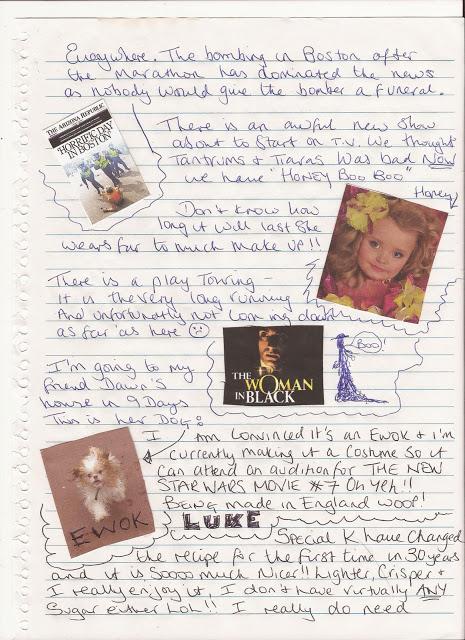 Everywhere. The bombing in Boston after
the Marathon has dominated the news
as nobody would give the bomber a funeral.
THE ARIZONA REPUBLIC
'HORRIFIC DAY
IN BOSTON'
There is an awful new show
about to start on T.V. We thought
Tantrums & Tiaras was bad NOW
we have "HONEY BOO BOO"
Honey
Don't know how
long it will last she
wears far to much make up!!
There is a play Touring -
It is the very long running
And unfortunately not
as far as here
BOO!
THE
WOMAN
IN BLACK
I'm going to my
friend Dawn's
house in 9 Days
This is her Dog:
I am convinced it's an Ewok & i'm
currently making it a costume so it
can attend an audition for THE NEW
STAR WARS MOVIE #7 Oh Yeh!!
BEING made in England woof!
EWOK
LUKE
Special K have changed
the recipe for the first time in 30 years
and it is Soooo much Nicer!! Lighter, Crisper &
I really enjoy it, I don't have virtually ANY
Sugar either Loh!! I really do need